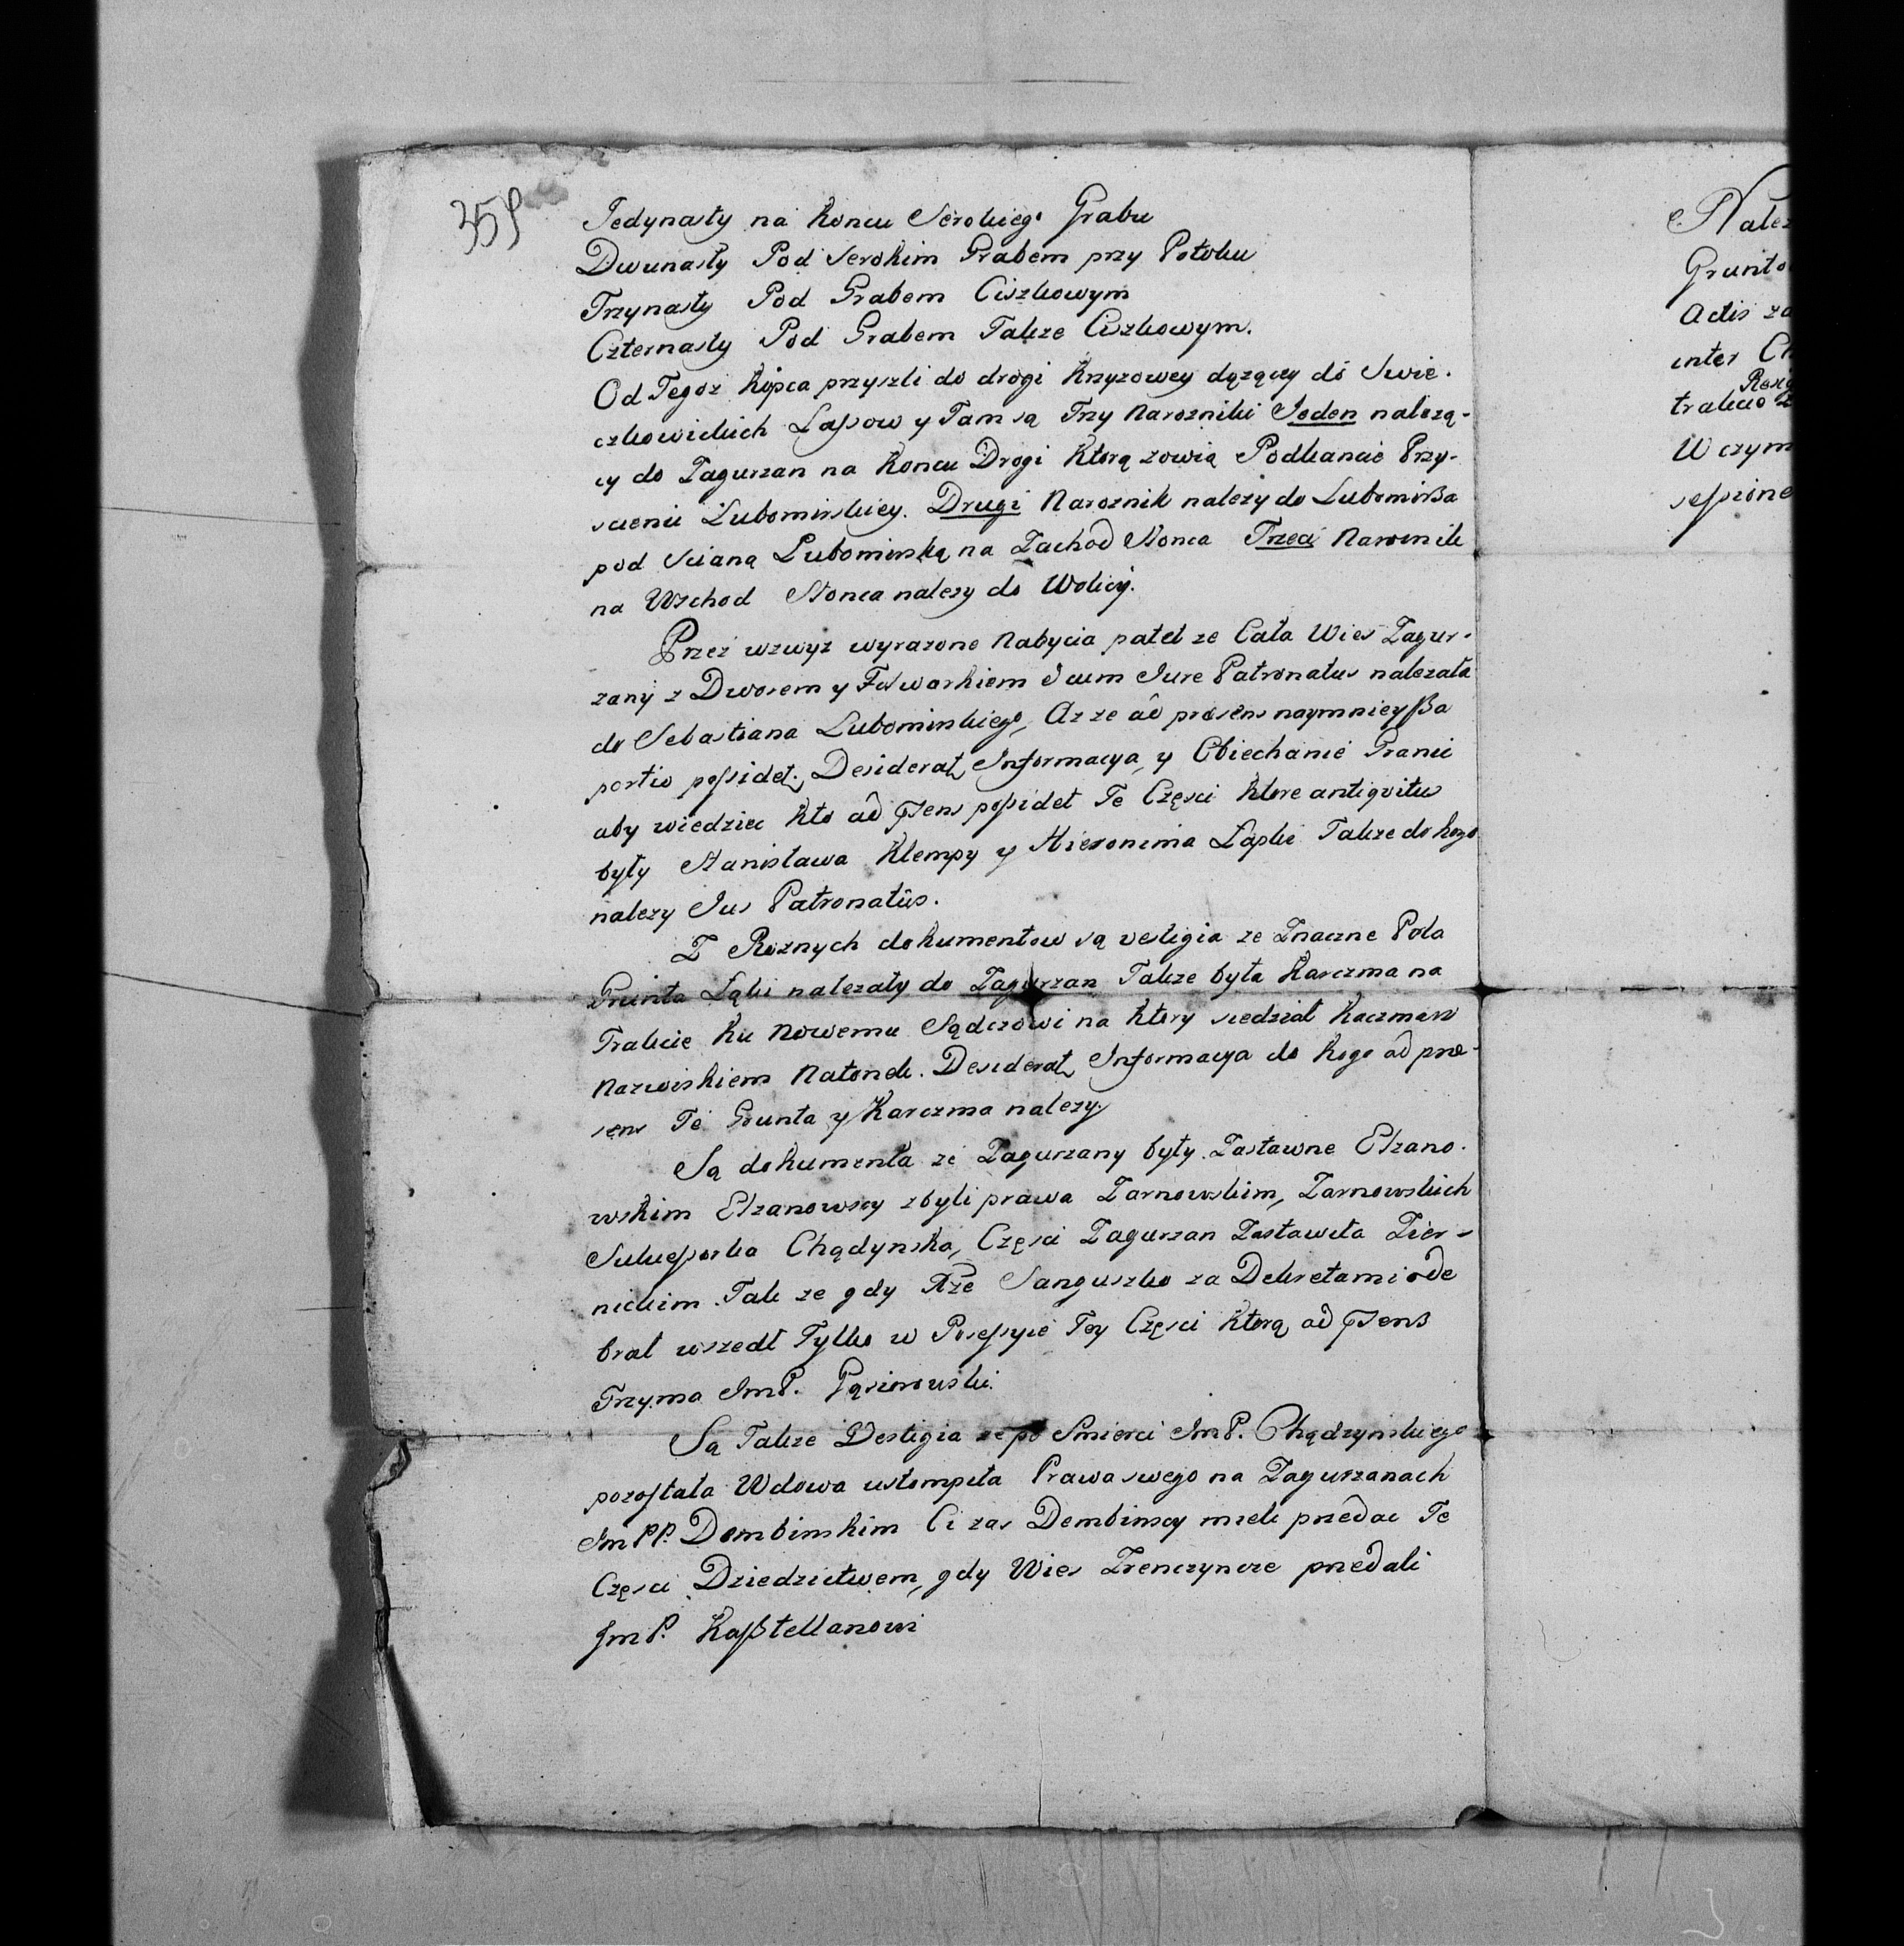 359
Jedynasty na koncu Serokiego Grabu
Dwunasty Pod Serokim Grabem przy Potoku
Trzynasty Pod Grabem Ciszkowym
Czternasty Pod Grabem Takze Ciszkowym.
Od Tegoz Kopca przyszli do drogi Krzyzowey dązący do Swie-
czkowickich Lassow y Tam są Trzy Narozniki Jeden nalezą-
cy do Zagurzan na Koncu Drogi Ktorą zowią Podkancie Przy-
scienie Lubomirskiey. Drugi Naroznik nalezy do Lubomirßa
pod Scianą Lubomirską na Zachod Słonca Trzeci Naroznik
na Wschod Słonca nalezy do Wolicy.
Przez wzwyz wyrazone Nabycia patet ze Cała Wies Zagur-
zany z Dworem y Folwarkiem Icum Jure Patronatus nalezała
do Sebastiana Lubomirskiego, Az ze ad praesens naymnieyßa
portio possidet. Desiderat Informacya, y Obiechanie Granic
aby wiedziec Kto ad psens possidet Te Częsci Ktore antiquitus
były Stanisława Klempy y Hieronima Łapki Takze do kogo
nalezy Jus Patronatûs.
Z Roznych dokumentow są vestigia ze Znaczne Pola
Grunta Łąki nalezały do Zagurzan Takze była Karczma na
Trakcie ku Nowemu Sądczowi na Ktory siedział Kaczmarz
Nazwiskiem Natonek. Desiderat Informacya do Kogo ad prae-
sens Te Grunta y Karczma nalezy.
Są dokumenta ze Zagurzany były Zastawne Elzano-
wskim Elzanowscy zbyli prawa Zarnowskim, Zarnowskich
Sukcessorka Chądynska, Częsci Zagurzan Zastawiła Zier-
nickim. Tak ze gdy Xże Sanguszko za Dekretami ode
brał wszedł Tylko w Possessyie Tey Częsci Ktorą ad psens
Trzyma JmP. Gąsiorowski.
Są Takze Vestigia ze po Smierci JmP. Chądzynskiego
pozostała Wdowa ustompiła Prawa swego na Zagurzanach
JmPP. Dembinskim Ci zas Dembinscy mieli przedac Te
Częsci Dziedzictwem, gdy Wies Zrenczycze przedali
JmP. Kaßtellanowi
Nalez
Grunto
Actis za
inter Ch
Resig
W czym
sessione